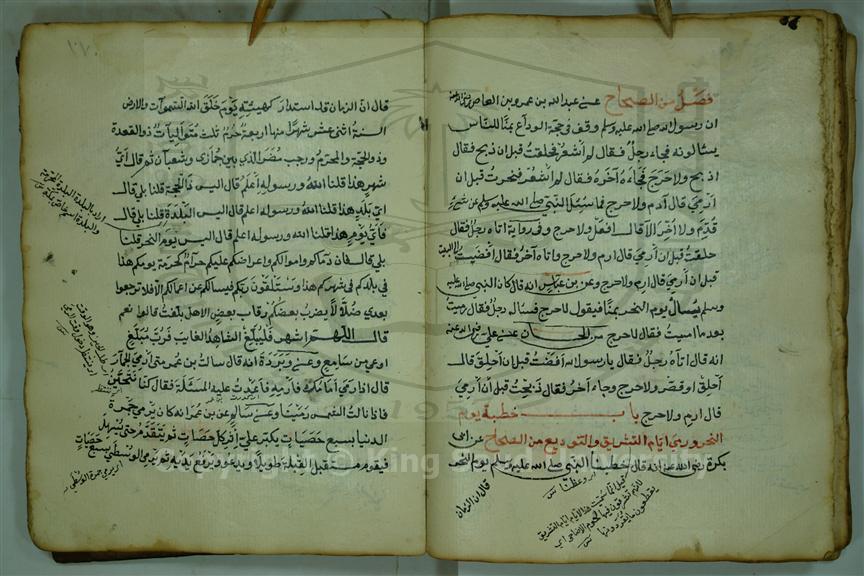 فصل من الصحاح عن عبد الله بن عمرو بن العاص رضي الله عنه
ان رسول الله صلى الله عليه وسلم وقف في حجة الوداع بمنا للناس
يسئالونه فجاء رجل فقال لم اشعر فحلقت قبل ان اذبح فقال
اذبح ولا حرج فجاء آخر فقال لم اشعر فنحرت قبل ان
ارمي قال ارم ولا حرج فما سئل النبي صلى الله عليه وسلم عن شيء
قدم ولا اخر الا قال افعل ولا حرج وفي رواية اتاه رجل فقال
حلقت قبل ان ارمي قال ارم ولا حرج واتاه آخر فقال افضت الى البيت
قبل ان ارمي قال ارم ولا حرج وعن بن عباس انه قال كان النبي صلى الله عليه
وسلم يسال يوم النحر بمنا فيقول لا حرج فساله رجل فقال رميت
بعد ما امسيت فقال لا حرج من الحسان عن علي رضي الله عنه
انه قال اتاه رجل فقال يا رسول الله افضت قبل ان احلق قال
احلق او قصر ولا حرج وجاء آخر فقال ذبحت قبل ان ارمي
قال ارم ولا حرج باب خطبة يوم
النحر ورمي ايام التشريق والتوديع من الصحاح عن ابي
بكرة رضي الله عنه انه قال خطبنا النبي صلى الله عليه وسلم يوم النحر
اي وعظنا
قال ان الزمان
قال ان الزمان قد استدار كهيئته يوم خلق الله السموات والارض
السنة اثنى عشر شهرا منها اربعة حرم ثلث متواليات ذو القعدة
وذو الحجة والمحرم ورجب مضر الذي بين جمادى وشعبان ثم قال اي
شهر هذا قلنا الله ورسوله اعلم قال اليس ذا الحجة قلنا بلى قال
اي بلد هذا قلنا الله ورسوله اعلم قال اليس البلدة قلنا بلى قال
فاي يوم هذا قلنا الله ورسوله اعلم قال اليس يوم النحر قلنا
بلى قال فان دماءكم واموالكم واعراضكم عليكم حرام كحرمة يومكم هذا
في بلدكم في شهركم هذا وستلقون ربكم فيسالكم عن اعمالكم الا فلا ترجعوا
بعدي ضلالا يضرب بعضكم رقاب بعض الا هل بلغت قالوا نعم
قال اللهم اشهد فليبلغ الشاهد الغايب فرب مبلغ
اوعى من سامع وعن وبرة انه قال سالت بن عمر متى ارمي الجمار
قال اذا رمى امامك فارمه فاعدت عليه المسئلة فقال كنا نتحين
فاذا زالت الشمس رمينا وعن سالم عن بن عمر انه كان يرمي جمرة
الدنيا بسبع حصيات يكبر على اثر كل حصاة ثم يتقدم حتى يسهل
فيقوم مستقبل القبلة طويلا ويدعو ويرفع يديه ثم يرمي الوسطى بسبع حصيات
اي يرمي جمرة الوسطى
© King Saud University